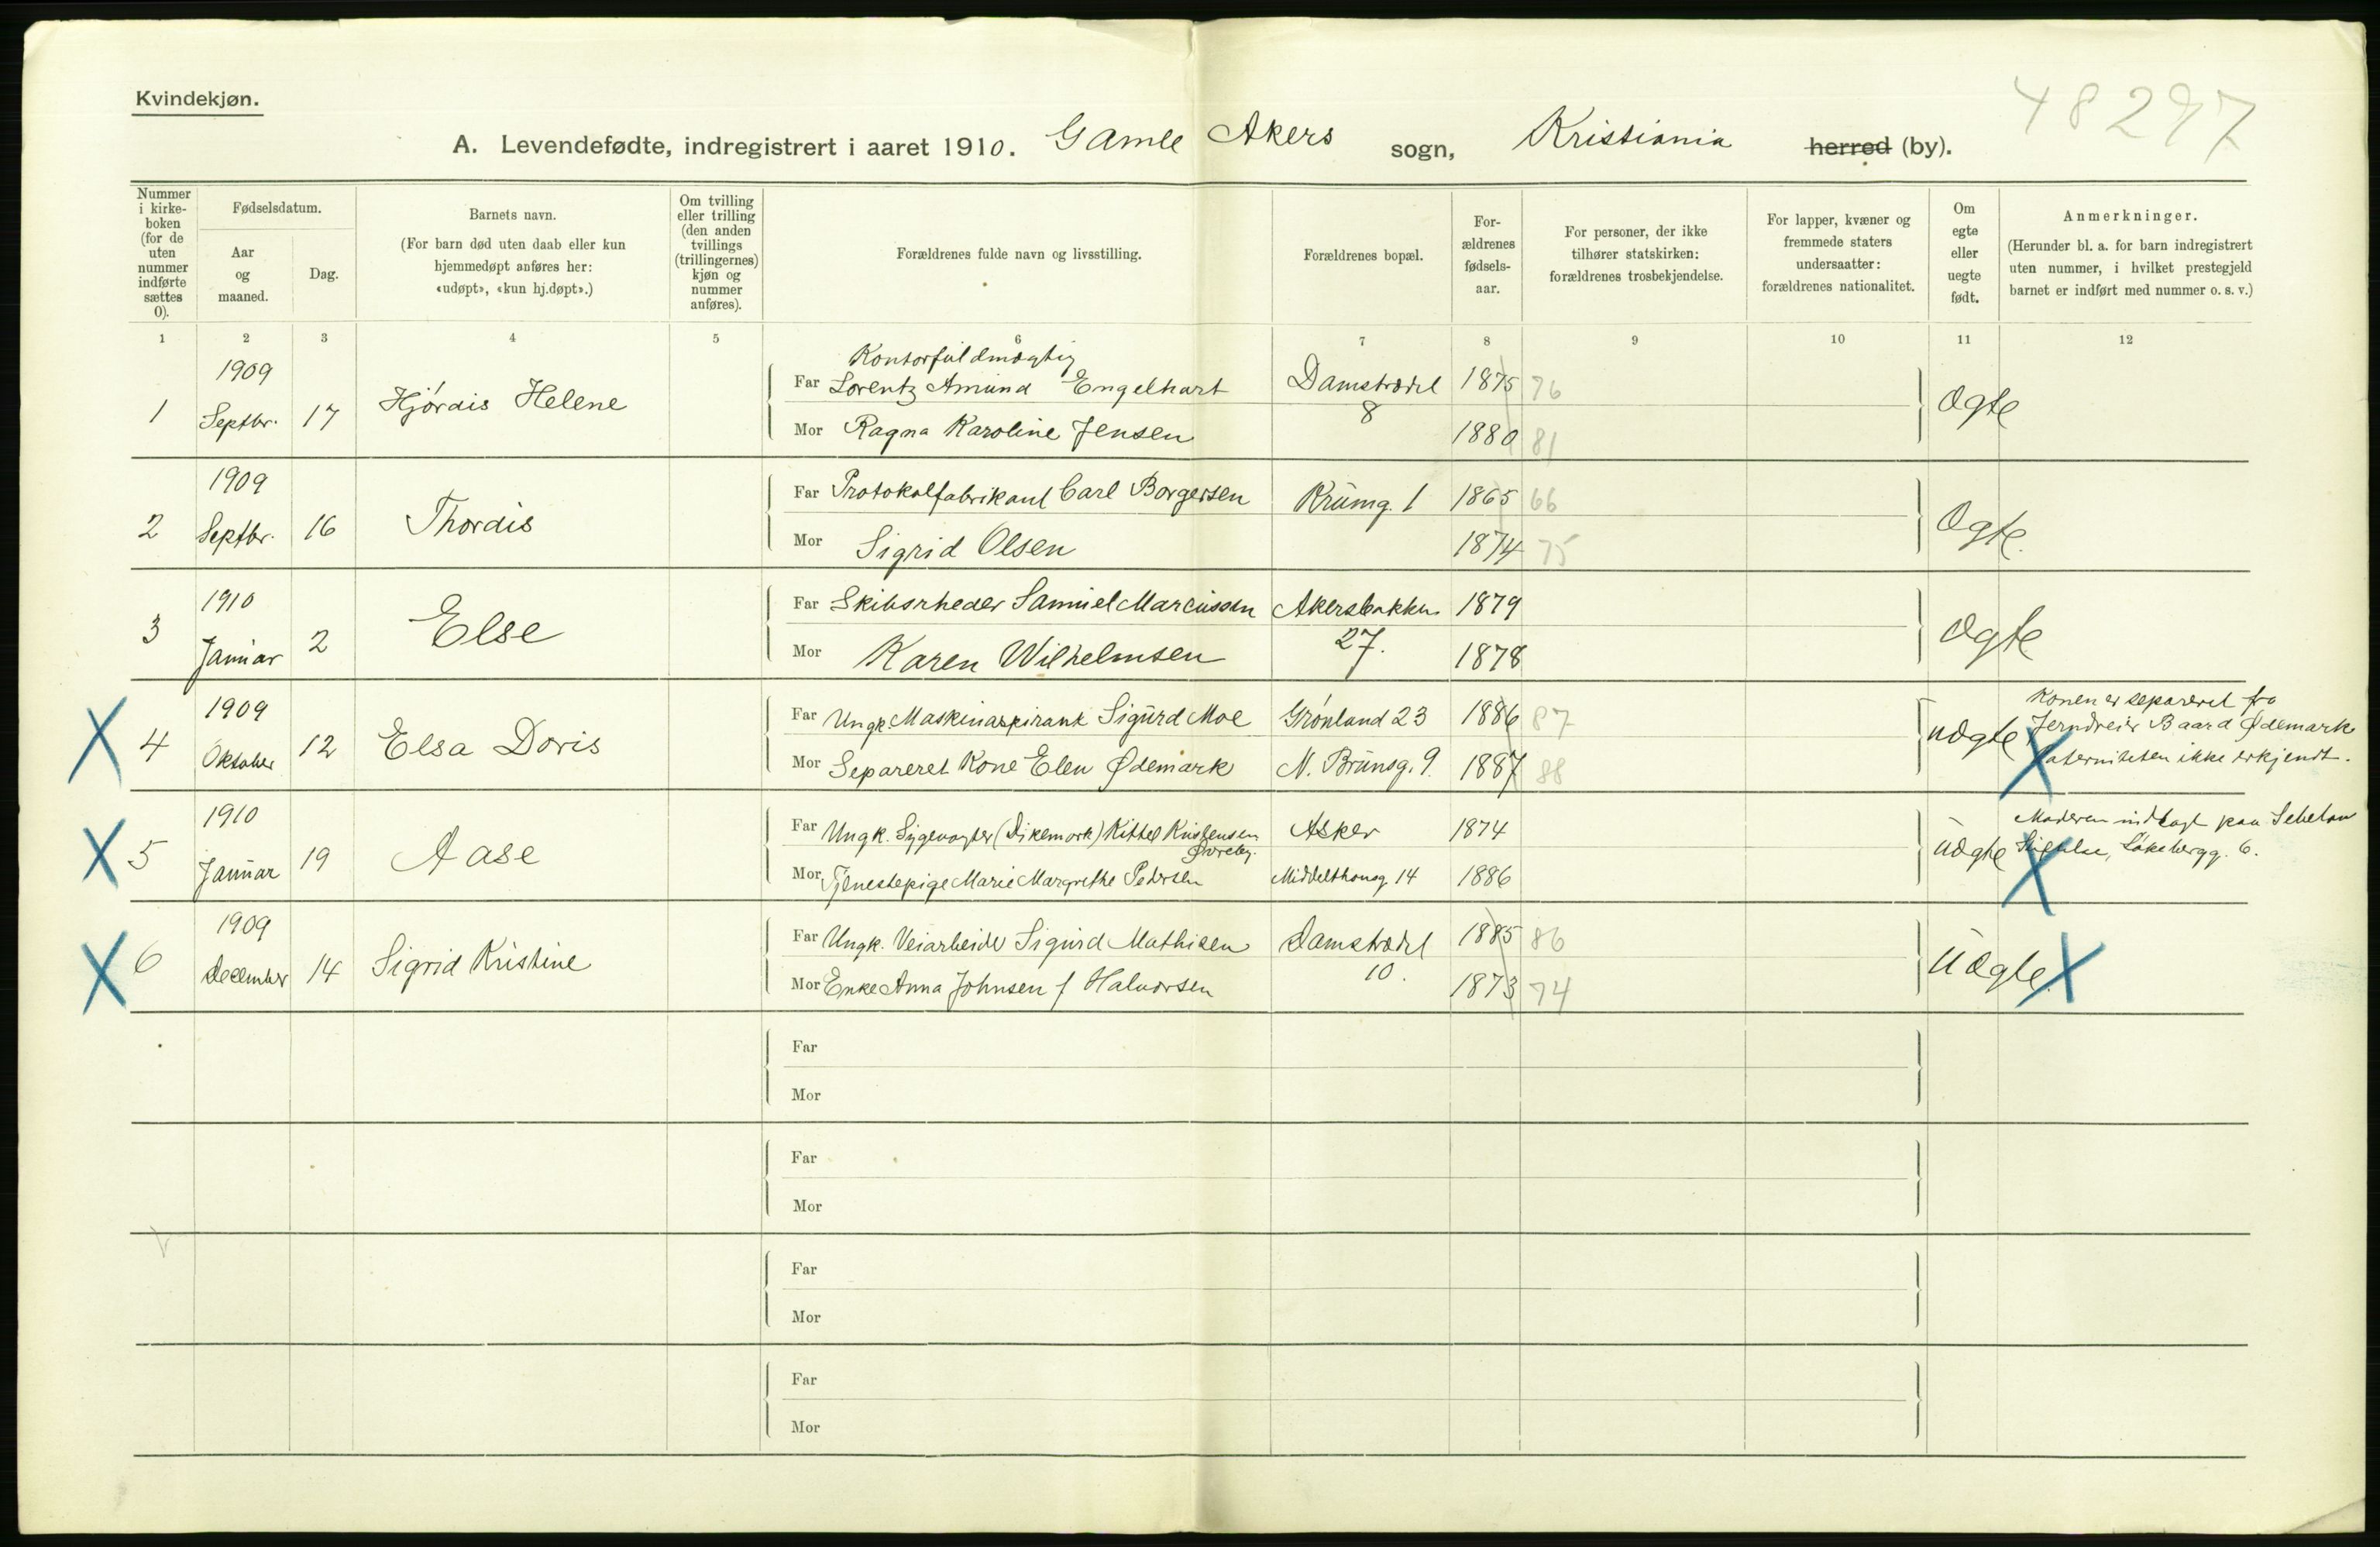 Kvindekjøn.
48297
A. Levendefødte, indregistrert i aaret 1910. Gamle Akers sogn, Kristiania herred (by).
Nummer i kirke-boken (for de uten nummer indførte sættes 0).
Fødselsdatum.
Aar og maaned.
Dag.
Barnets navn.
(For barn død uten daab eller kun hjemmedøpt anføres her: «udøpt», «kun hj.døpt».)
Om tvilling eller trilling (den anden tvillings (trillingernes) kjøn og nummer anføres).
Forældrenes fulde navn og livsstilling.
Forældrenes bopæl.
For-ældrenes fødsels-aar.
For personer, der ikke tilhører statskirken: forældrenes trosbekjendelse.
For lapper, kvæner og fremmede staters undersaatter: forældrenes nationalitet.
Om egte eller uegte født.
Anmerkninger.
(Herunder bl. a. for barn indregistrert uten nummer, i hvilket prestegjeld barnet er indført med nummer o. s. v.)
1 2 3 4 5 6 7 8 9 10 11 12
1 1909 Septbr. 17 Hjørdis Helene
Kontorfuldmægtig
Far Lorentz Amund Engelhart Damstrædet 8 1875 76
Mor Ragna Karoline Jensen 1880 81
Ægte
2 1909 Septbr. 16 Thordis
Far Protokolfabrikant Carl Borgersen Krumg. 1 1865 66
Mor Sigrid Olsen 1874 75
Ægte.
3 1910 Januar 2 Else
Far Skibsrheder Samuel Marcussen Akersbakken 27. 1879
Mor Karen Wilhelmsen 1878
Ægte
X 4 1909 Oktober 12 Elsa Doris
Far Ungk. Maskinaspirant Sigurd Moe Grønland 23 1886 87
Mor Separeret Kone Elen Ødemark N. Brunsg. 9. 1887 88
uægte X
Konen er separeret fra
Jerndreier Baard Ødemark
Paterniteten ikke erkjendt.
X 5 1910 Januar 19 Aase
Far Ungk. Sygevogter (Dikemark) Kittel Kristensen Asker 1874
Mor Tjenestepige Marie Margrethe Pedersen Middelthonsg 14 1886
Uægte X
Moderen indtagt paa
Stiftelse, Løkebergg. 6.
X 6 1909 December 14 Sigrid Kristine
Far Ungk. Veiarbeider Sigurd Mathisen Damstrædet 10. 1885 86
Mor Enke Anna Johnsen f Halvorsen 1873 74
Uægte. X
Far
Mor
Far
Mor
Far
Mor
Far
Mor